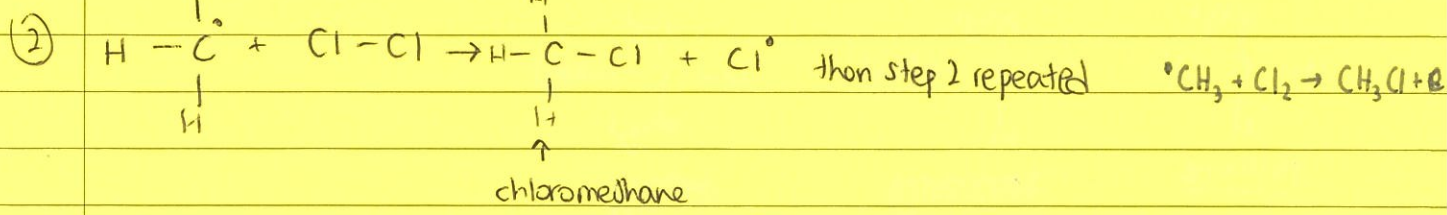 ② H - C• + Cl - Cl → H - C - Cl + Cl• thon step 2 repeated •CH₃ + Cl₂ → CH₃Cl +
H H
↑
chloromethane